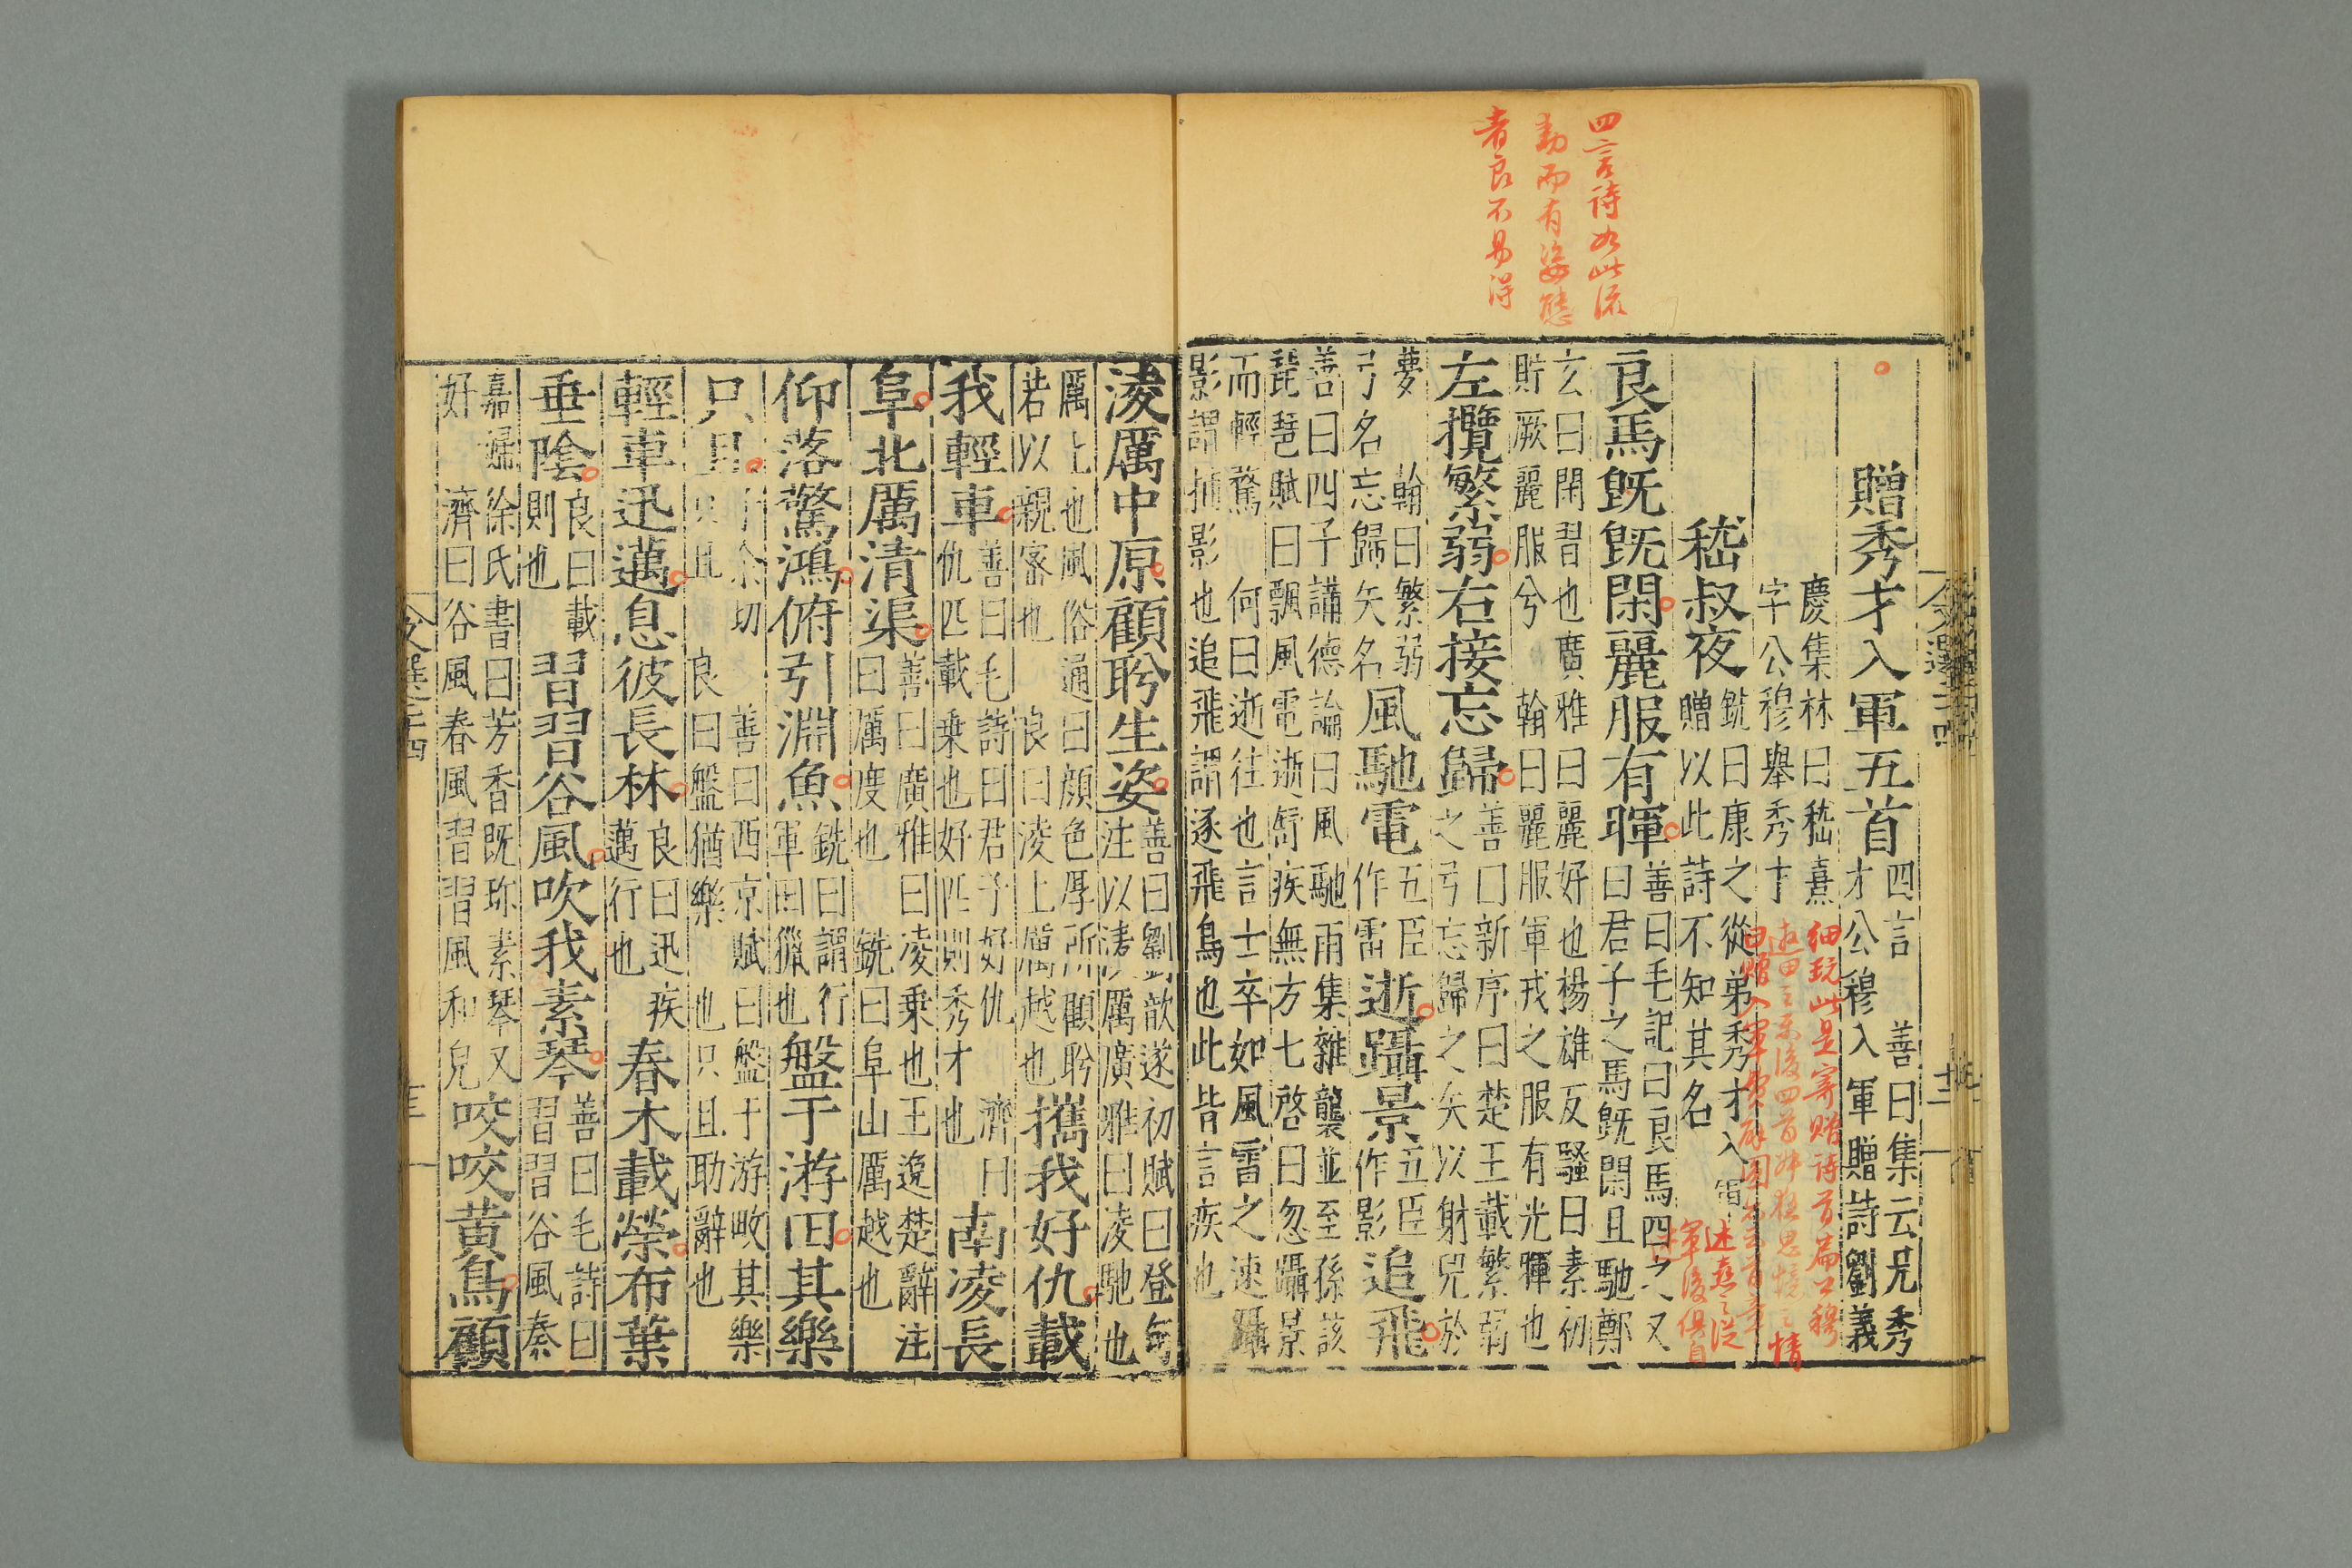 四言詩如此流
動而有姿態
者良不易得
贈秀才入軍五首四言 善曰集云兄秀才公穆入軍贈詩劉義
慶集林曰嵇熹字公穆舉秀才
嵇叔夜銑曰康之從弟秀才入軍贈以此詩不知其名
細玩此是寄贈詩首篇公穆
遊田之樂後四首
情
述熹之從
軍後俱自
良馬旣旣閑麗服有暉善曰毛詩曰良馬四之又曰君子之馬旣閑且馳鄭
玄曰閑習也廣雅曰麗好也楊雄反騷曰素初貯厥麗服兮 翰曰麗服軍戎之服有光暉也
左攬繁弱右接忘歸善曰新序曰楚王載繁弱之弓忘歸之矢以射兕於
夢 翰曰繁弱弓名忘歸矢名風馳電五臣作雷逝躡景五臣作影追飛
善曰四子講德論曰風馳雨集雜襲並至孫該琵琶賦曰飄風電逝舒疾無方七啓曰忽躡景
而輕騖 何曰逝往也言士卒如風雷之速躡影謂捕影也追飛謂逐飛鳥也此皆言疾也
淩厲中原顧盼生姿善曰劉歆遂初賦曰登句注以淩厲廣雅曰凌馳也
厲上也風俗通曰顔色厚所顧盼若以親密也 良曰淩上厲越也攜我好仇載
我輕車善曰毛詩曰君子好仇仇匹載乗也好匹則秀才也 濟曰南凌長
阜北厲清渠善曰廣雅曰凌乗也王逸楚辭注曰厲度也 銑曰阜山厲越也
仰落驚鴻俯引淵魚銑曰謂行軍田獵也盤于游田其樂
只且子余切 善曰西京賦曰盤于游畋其樂只且 良曰盤猶樂也只且助辭也
輕車迅邁息彼長林良曰迅疾邁行也春木載榮布葉
垂陰良曰載則也習習谷風吹我素琴善曰毛詩曰習習谷風秦
嘉婦徐氏書曰芳香既珎素琴又好 濟曰谷風春風習習風和皃咬咬黃鳥顧